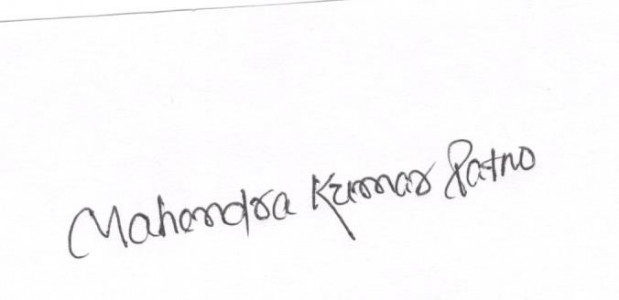 Mahendra Kumar Patro